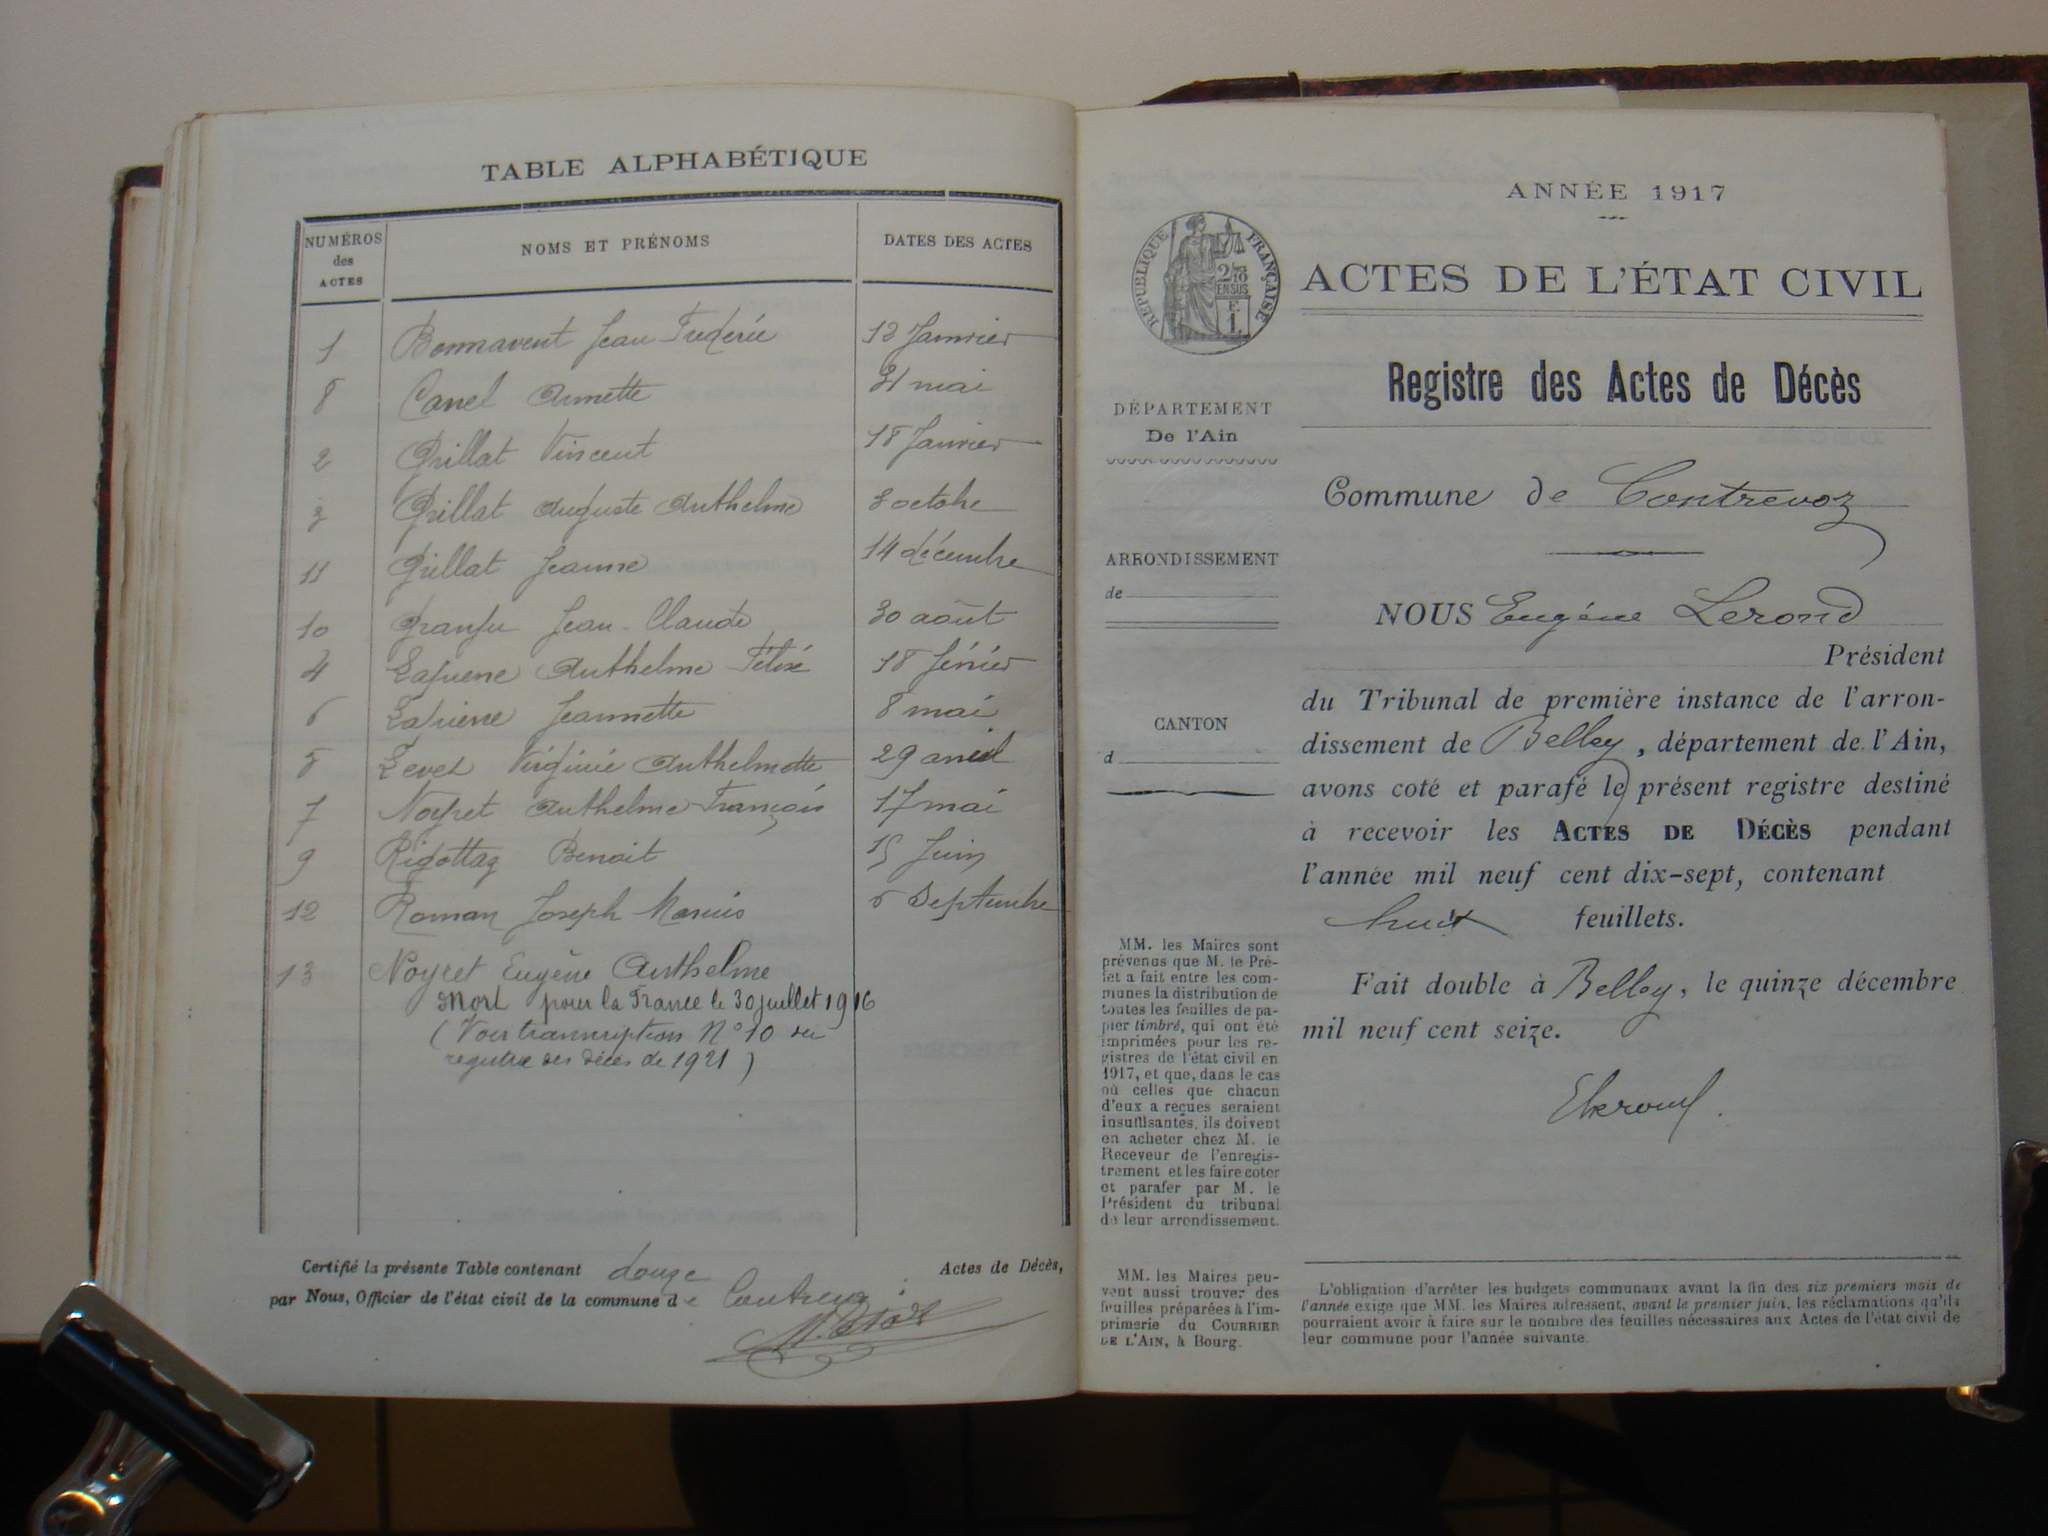 TABLE ALPHABÉTIQUE
NUMÉROS des ACTES NOMS ET PRÉNOMS DATES DES ACTES
1 Bonnavent Jean Frédéric 12 Janvier
8 Canel Annette 31 mai
2 Grillat Vincent 18 Janvier
3 Grillat Auguste Anthelme 3 octobre
11 Grillat Jeanne 14 décembre
10 Jean-Claude 30 août
4 Anthelme 18 février
6 Jeannette 8 mai
5 Levet Virginie Anthelmette 29 avril
7 Noyret Anthelme François 17 mai
9 Rigottaz Benoit 15 Juin
12 Roman Joseph Marius 6 Septembre
13 Noyret Eugène Anthelme
Mort pour la France le 30 juillet 1916
(Voir transcription N° 10 du
registre des décès de 1921)
Certifié la présente Table contenant douze Actes de Décès,
par Nous, Officier de l'état civil de la commune de Contrevoz
ANNÉE 1917
RÉPUBLIQUE FRANÇAISE
2/10
EN SUS
F.
1.
ACTES DE L'ÉTAT CIVIL
Registre des Actes de Décès
DÉPARTEMENT
De l'Ain
Commune de Contrevoz
ARRONDISSEMENT
de
NOUS Eugène Lerond
Président
CANTON
d
du Tribunal de première instance de l'arron-
dissement de Belley, département de l'Ain,
avons coté et parafé le présent registre destiné
à recevoir les ACTES DE DÉCÈS pendant
l'année mil neuf cent dix-sept, contenant
huit feuillets.
Fait double à Belley, le quinze décembre
mil neuf cent seize.
ELerond
MM. les Maires sont
prévenus que M. le Pré-
fet a fait entre les com-
munes la distribution de
toutes les feuilles de pa-
pier timbré, qui ont été
imprimées pour les re-
gistres de l'état civil en
1917, et que, dans le cas
où celles que chacun
d'eux a reçues seraient
insuffisantes, ils doivent
en acheter chez M. le
Receveur de l'enregis-
trement et les faire coter
et parafer par M. le
Président du tribunal
de leur arrondissement.
MM. les Maires peu-
vent aussi trouver des
feuilles préparées à l'im-
primerie du COURRIER
DE L'AIN, à Bourg.
L'obligation d'arrêter les budgets communaux avant la fin des six premiers mois de
l'année exige que MM. les Maires adressent, avant le premier juin, les réclamations qu'ils
pourraient avoir à faire sur le nombre des feuilles nécessaires aux Actes de l'état civil de
leur commune pour l'année suivante.